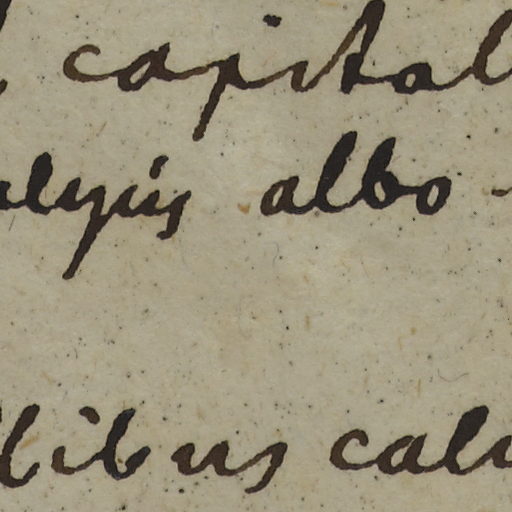 capital
alycis albo -
libus cali